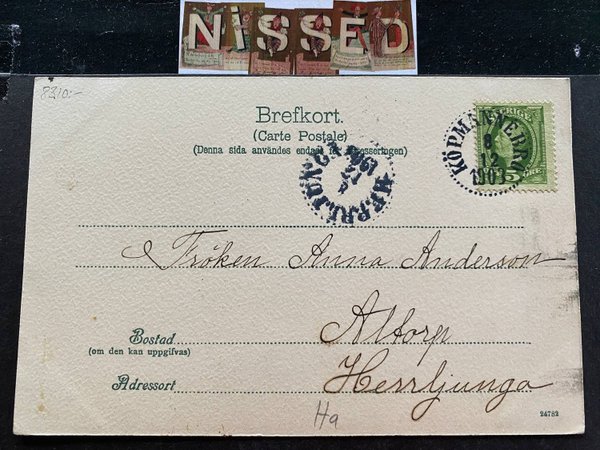 NISSED
8210:-
Brefkort.
(Carte Postale)
(Denna sida användes endast för adresseringen)
HERRLJUNGA
SVERIGE
KÖPMANNEBRO
8
12
1903
5 ÖRE
Fröken Anna Anderson
Altorp
Bostad
(om den kan uppgifvas)
Adressort
Herrljunga
Ha
24782